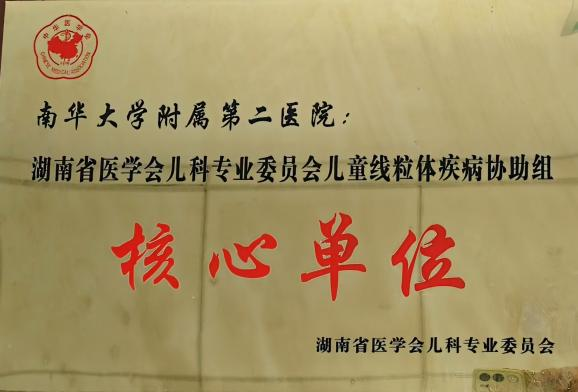 中华医学会
CHINESE MEDICAL ASSOCIATION
南华大学附属第二医院：
湖南省医学会儿科专业委员会儿童线粒体疾病协助组
核心单位
湖南省医学会儿科专业委员会